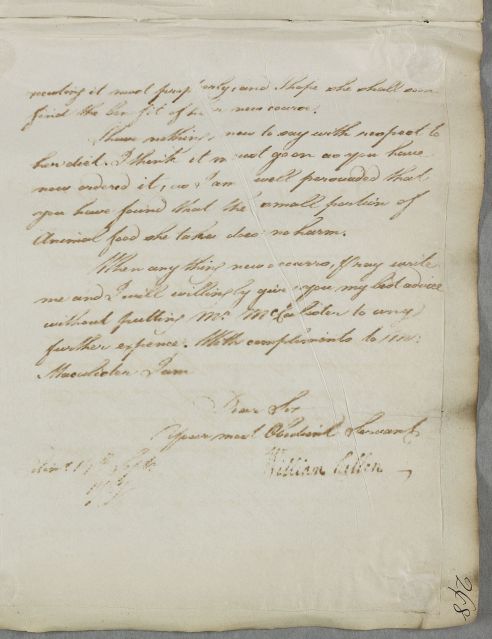 it most properly, and I hope she shall soon
find the benefit of her new course.
I have nothing new to say with respect to
her diet. I think it must go on as you have
now ordered it, as I am well persuaded that
you have found that the small portion of
Animal food she takes does no harm.
When any thing new occurrs, I pray write
me and I will willingly give you my best advice
without putting Mr. McCalister to any
further expence. With compliments to
Macalister I am
Dear Sir
Your most Obedient Servant
William Cullen
Edinr. Septr.
248